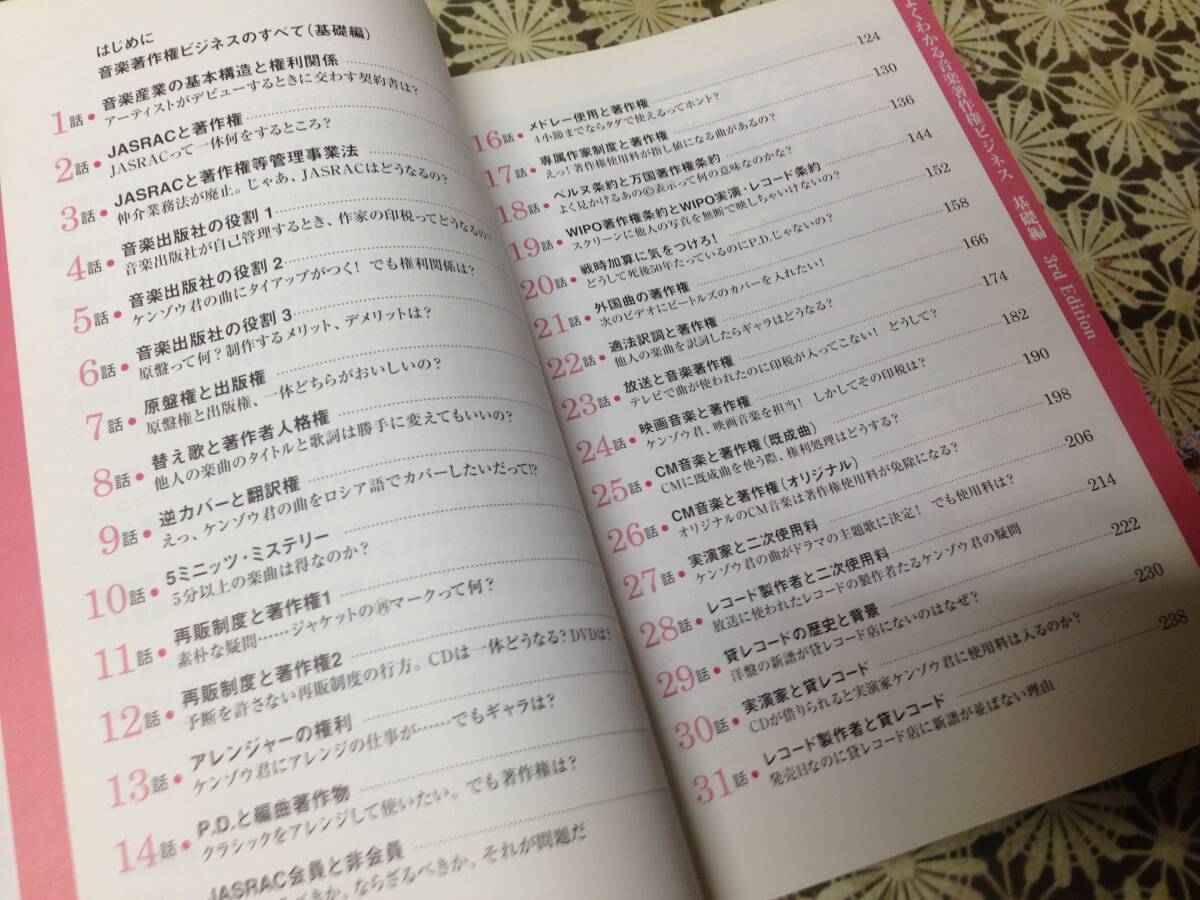 はじめに
音楽著作権ビジネスのすべて(基礎編)
1話•音楽産業の基本構造と権利関係
アーティストがデビューするときに交わす契約書は?
2話•JASRACと著作権
JASRACって一体何をするところ?
3話•JASRACと著作権等管理事業法
仲介業務法が廃止。じゃあ、JASRACはどうなるの?
4話•音楽出版社の役割 1
音楽出版社が自己管理するとき、作家の印税ってどうなるの?
5話•音楽出版社の役割 2
ケンゾウ君の曲にタイアップがつく! でも権利関係は?
6話•音楽出版社の役割 3
原盤って何? 制作するメリット、デメリットは?
7話•原盤権と出版権
原盤権と出版権、一体どちらがおいしいの?
8話•替え歌と著作者人格権
他人の楽曲のタイトルと歌詞は勝手に変えてもいいの?
9話•逆カバーと翻訳権
えっ、ケンゾウ君の曲をロシア語でカバーしたいだって!?
10話•5ミニッツ・ミステリー
5分以上の楽曲は得なのか?
11話•再販制度と著作権1
素朴な疑問……ジャケットの㊢マークって何?
12話•再販制度と著作権2
予断を許さない再販制度の行方。CDは一体どうなる? DVDは?
13話•アレンジャーの権利
ケンゾウ君にアレンジの仕事が……でもギャラは?
14話•P.D.と編曲著作物
クラシックをアレンジして使いたい。でも著作権は?
JASRAC会員と非会員
べきか、ならざるべきか。それが問題だ
16話•メドレー使用と著作権 124
4小節までならタダで使えるってホント?
17話•専属作家制度と著作権 130
えっ! 著作権使用料が指し値になる曲があるの?
18話•ベルヌ条約と万国著作権条約 136
よく見かけるあの©表示って何の意味なのかな?
19話•WIPO著作権条約とWIPO実演・レコード条約 144
スクリーンに他人の写真を無断で映しちゃいけないの?
20話•戦時加算に気をつけろ! 152
どうして死後50年たっているのにP.D.じゃないの?
21話•外国曲の著作権 158
次のビデオにビートルズのカバーを入れたい!
22話•適法訳詞と著作権 166
他人の楽曲を訳詞したらギャラはどうなる?
23話•放送と音楽著作権 174
テレビで曲が使われたのに印税が入ってこない! どうして?
24話•映画音楽と著作権 182
ケンゾウ君、映画音楽を担当! しかしてその印税は?
25話•CM音楽と著作権(既成曲) 190
CMに既成曲を使う際、権利処理はどうする?
26話•CM音楽と著作権(オリジナル) 198
オリジナルのCM音楽は著作権使用料が免除になる?
27話•実演家と二次使用料 206
ケンゾウ君の曲がドラマの主題歌に決定! でも使用料は?
28話•レコード製作者と二次使用料 214
放送に使われたレコードの製作者たるケンゾウ君の疑問
29話•貸レコードの歴史と背景 222
洋盤の新譜が貸レコード店にないのはなぜ?
30話•実演家と貸レコード 230
CDが借りられると実演家ケンゾウ君に使用料は入るのか?
31話•レコード製作者と貸レコード 238
発売日なのに貸レコード店に新譜が並ばない理由
よくわかる音楽著作権ビジネス 基礎編 3rd Edition